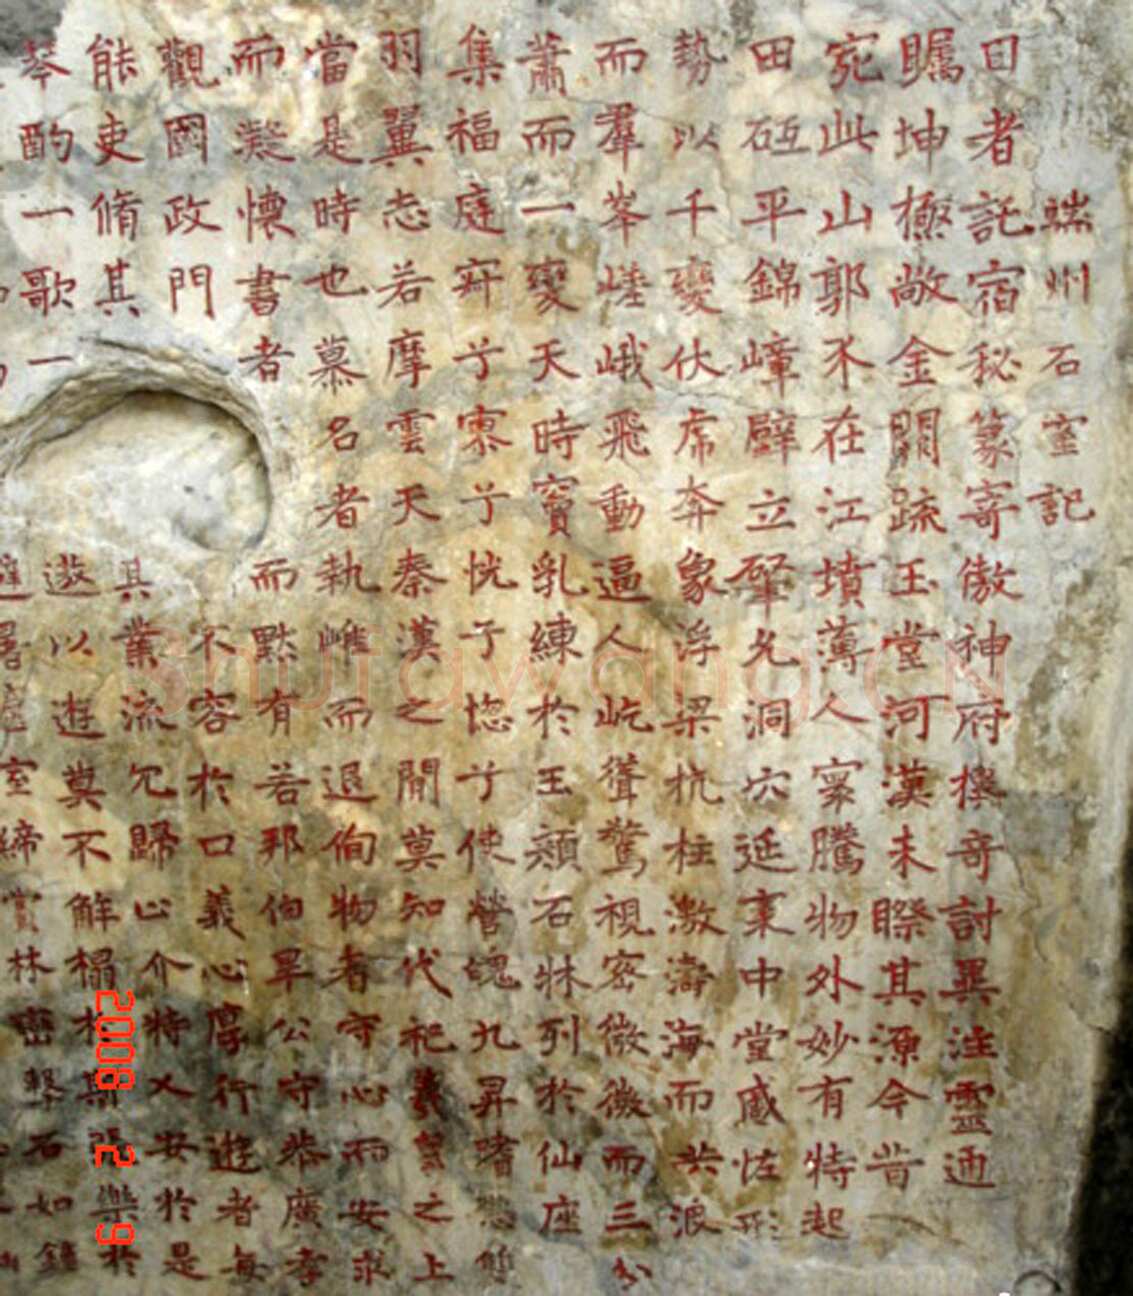 端州石室記
日者託宿秘篆寄傲神府櫻奇討異注靈通
矚坤極敞金關疏玉堂河漢未睽其源今昔
宛此山郭不在江墳薄人寰騰物外妙有特起
田砥平錦嶂壁立肇允洞穴延袤中堂感怪形
勢以千變伏虎奔象浮梁杭柱激濤海而共浪
而羣峯嵯峨飛動逼人屹聳驚視密微微而三分
蕭而一變天時竇乳練於玉顏石牀列於仙座
集福庭窅兮寥兮恍兮惚兮使營魄九昇嗜慾雙
羽翼志若摩雲天秦漢之間莫知代祀羲氏之上
當是時也慕名者執雌而退徇物者守心而安求
而凝懷書者而默有若邦伯畢公守恭廣孝
觀國政門不容於口義心厚行遊者每
能吏脩其其業流冗歸止介特乂安於是
琴酌一歌一遊以遊莫不解榻於斯張樂於
室締賞林密磬石如鐘
shufawang.cn
2008 2 9